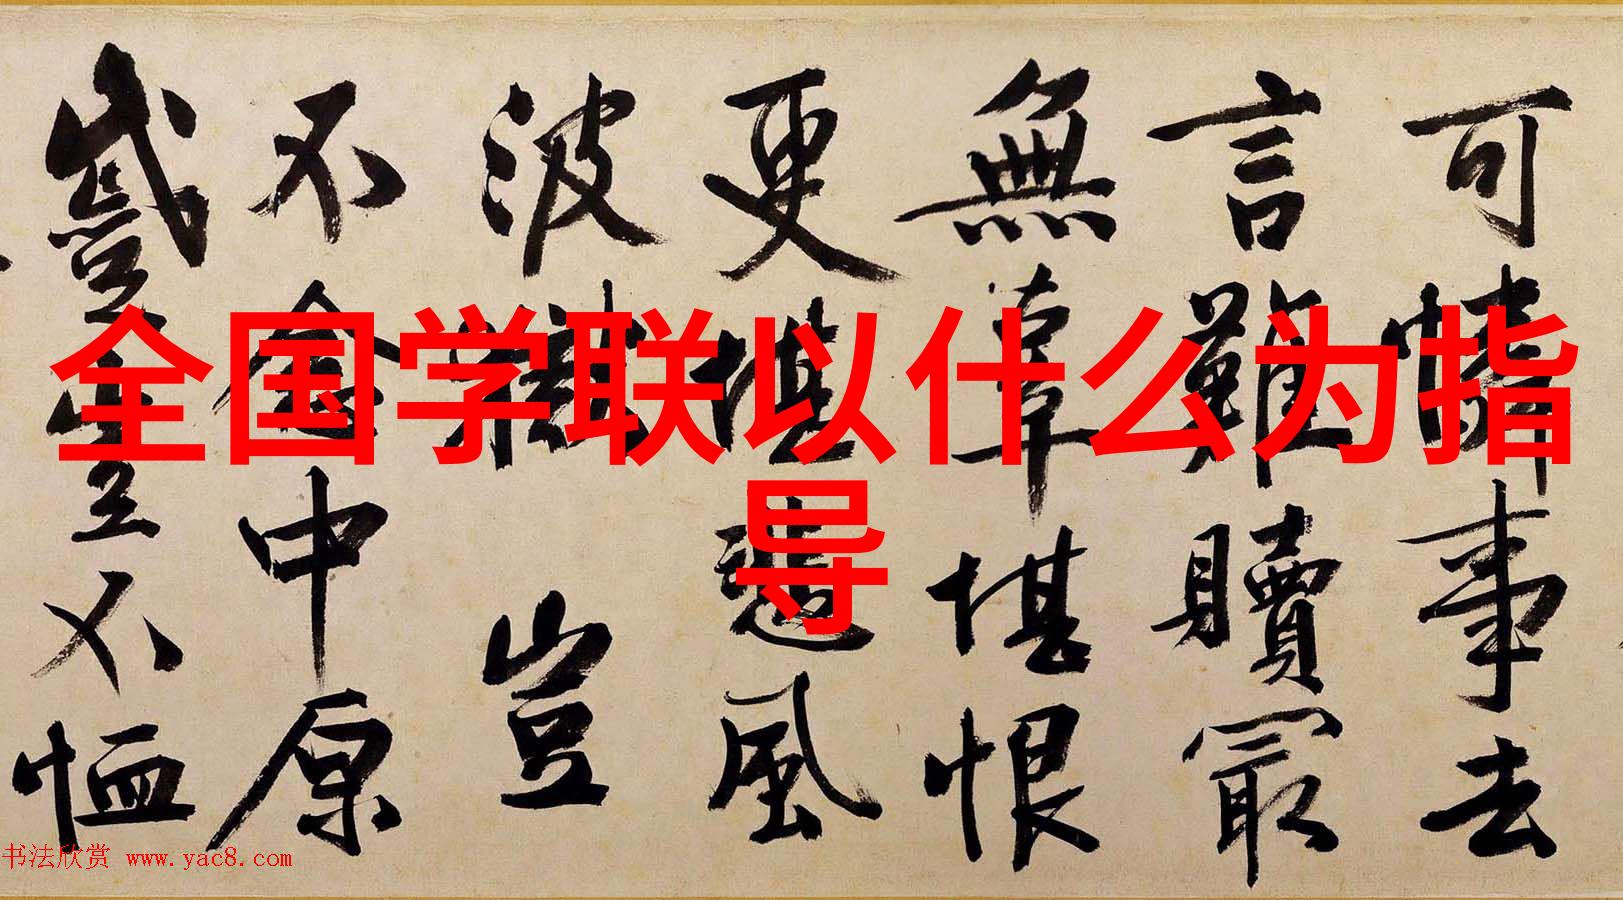 全国学联以什么为指
导
可憐事去
言難贖㝡
無辜堪恨
更堪悲風
波獄豈
不念中原
蹙豈不恤
书法欣赏 www.yac8.com